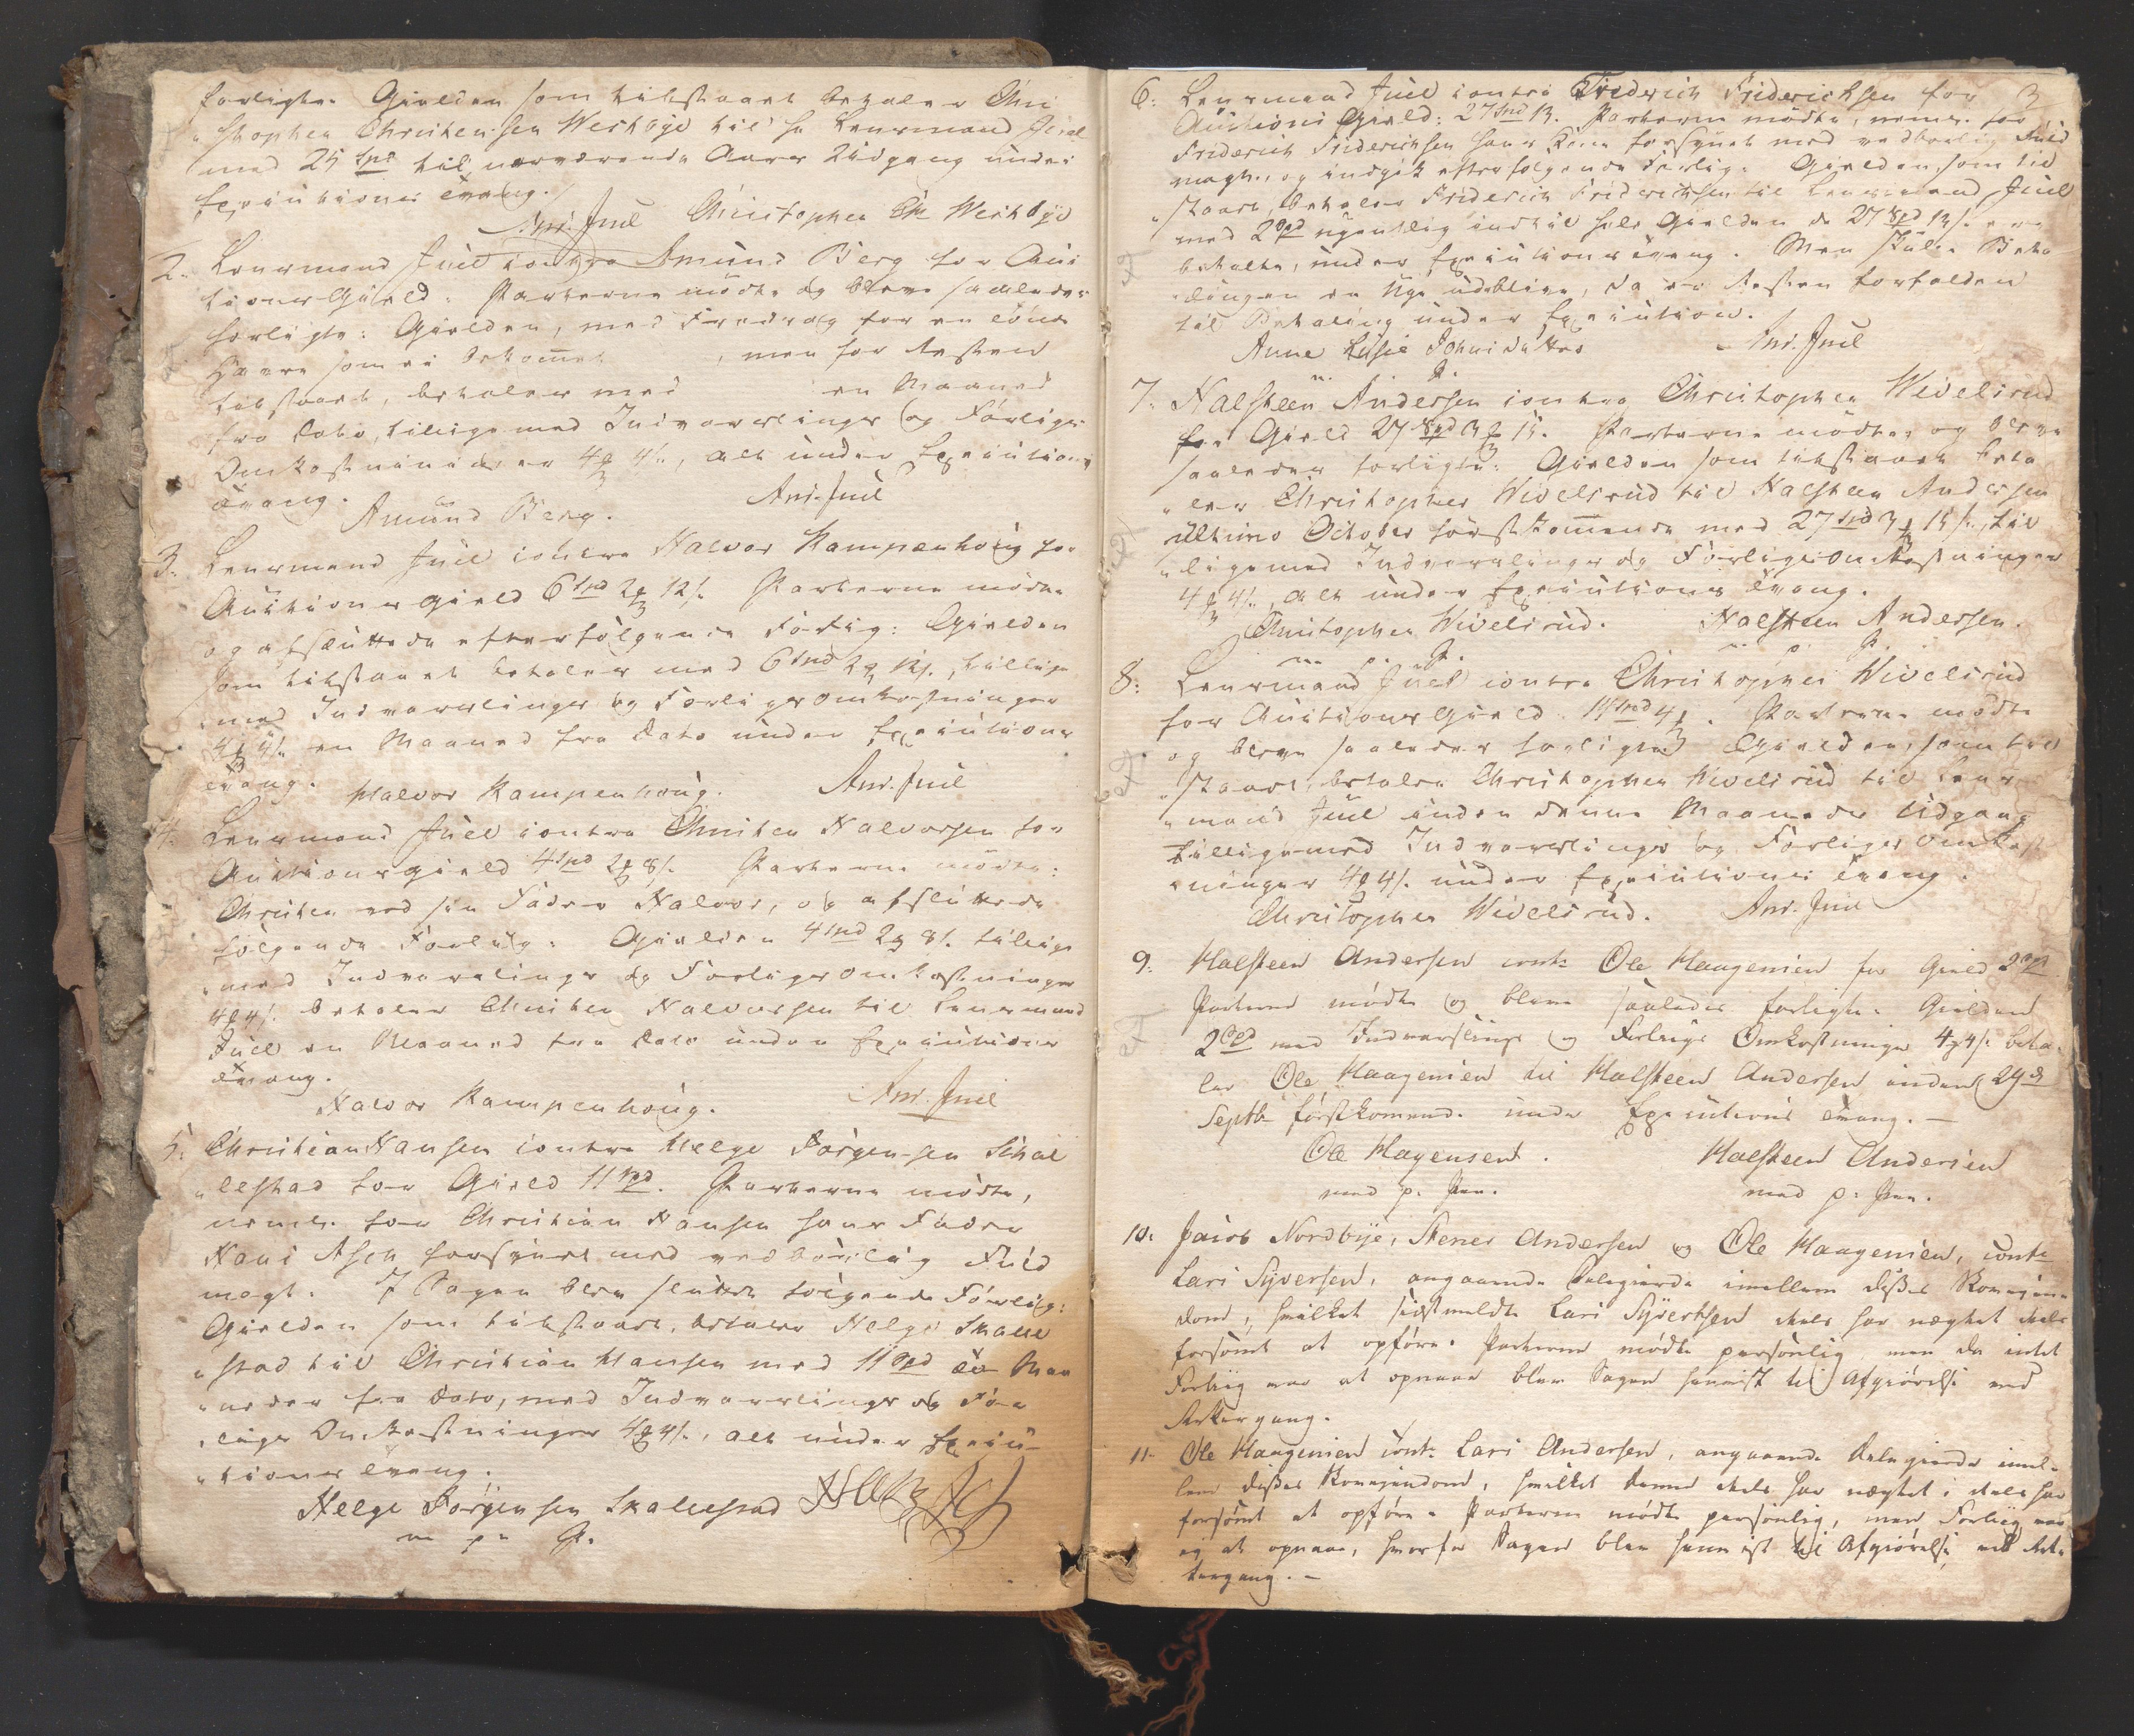 forligte. Gielden som tilstaaet betaler Chri
„stopher Christensen Westbye til Hr Lensmand Juel
med 25 Spd til nærværende Aars Udgang under
Executions Tvang.
Anr. Juel Christopher Chr Westbye
2. Lensmand Juel contra Amund Berg for Auc
tions Gield. Parterne mødte og bleve saaledes
forligte: Gielden, med Fradrag for en
som ei bekommet , men for Resten
tilstaaet, betales med en Maaned
fra Dato, tilligemed Indvarslings og Forligs
Omkostninger 4 ß 4/., alt under Executions
Tvang.
Amund Berg. Anr. Juel
3. Lensmand Juel contra Halvor Kampenhoug for
Auctions gield 6 Spd 2 ß 12/. Parterne mødte
og afsluttede efterfølgende Forlig: Gielden
som tilstaaet betales med 6 Spd 2 ß 12/., tillige
„med Indvarslings og Forligsomkostninger
4 ß 4/. en Maaned fra Dato under Executions
Tvang. Halvor Kampenhoug. Anr. Juel
4. Lensmand Juel contra Christen Halvorsen for
Auctionsgield 4 Spd 2 ß 8/. Parterne mødte:
Christen ved sin Fader Halvor, og afsluttede
følgende Forlig: Gielden 4 Spd 2 ß 8/. tillige
„med Indvarslings og Forligsomkostninger
4 ß 4/. betaler Christen Halvorsen til Lensmand
Juel en Maaned fra Dato under Executions
Tvang.
Halvor Kampenhoug. Anr. Juel
5. Christian Hansen contra Helge Jørgensen Schal
„lestad for Gield 11 Spd. Parterne mødte,
neml. for Christian Hansen hans Fader
Hans Asch forsynet med vedbørlig Fuld
magt. I Sagen blev sluttet følgende Forlig:
Gielden som tilstaaet, betaler Helge Skalle
„stad til Christian Hansen med 11 Spd to Maa
„neder fra Dato, med Indvarslings og For
„ligs Omkostninger 4 ß 4/., alt under Execu-
„tions Tvang.
Helge Jørgensen Skallestad
m p. P.
3
6: Lensmand Juel contra Friderich Friderichsen for
Auctions Gield: 27 Spd 13. Parterne mødte, neml. for
Friderich Friderichsen hans Kone forsynet med vedbørlig Fuld
magt, og indgik efterfølgende Forlig: Gielden som til
„staaet, betaler Friderich Friderichsen til Lensmand Juel
med 2 Spd ugentlig indtil hele Gielden de 27 Spd 13/. er
betalte, under Executions Tvang. Men skulde Beta
„lingen en Uge udeblive, da er Resten forfalden
til Betaling under Execution.
Anne Lisie Johnsdatter Anr. Juel
m. P.
7. Halsteen Andersen contra Christopher Wivelsrud
for Gield 27 Spd 3 ß 15. Parterne mødte, og bleve
saaledes forligte: Gielden som tilstaaet beta
„ler Christopher Wivelsrud til Halsteen Andersen
ultimo October førstkommende med 27 Spd 3 ß 15/., til
„ligemed Indvarslings og Forligsomkostninger
4 ß 4/., alt under Executions Tvang.
Christopher Wivelsrud. Halsteen Andersen.
m. p. P. m. p. P.
8: Lensmand Juel contra Christopher Wivelsrud
for Auctions Gield 14 Spd 4 ß. Parterne mødte
og bleve saaledes forligte: Gielden, som til
„staaet, betaler Christopher Wivelsrud til Lens
„mand Juel inden denne Maaneds Udgang
tilligemed Indvarslings og Forligs Omkost
„ninger 4 ß 4/. under Executions Tvang.
Christopher Wivelsrud. Anr. Juel
9. Halsteen Andersen cont: Ole Haagensen for Gield 2 Spd
Parterne mødte og bleve saaledes forligte. Gielden
2 Spd med Indvarslings og Forligs Omkostninger 4 ß 4/. beta-
ler Ole Haagensen til Halsteen Andersen inden 29de
Septbr førstkommende under Executions Tvang. —
Ole Hagensen. Halsteen Andersen
med p. Pen. med p. Pen.
10. Jacob Nordbye, Stener Andersen og Ole Haagensen, cont:
Lars Syversen, angaaende Delegierde imellem disses
, hvilket sidstmeldte Lars Syvertsen dels har nægtet dels
forsømt at opføre. Parterne mødte personlig men da intet
Forlig var at opnaae blev Sagen henvist til Afgiørelse ved
Rettergang.
11- Ole Haagensen cont: Lars Andersen, angaaende Delegierde imel-
lem disses , hvilket denne dels har nægtet i dels har
forsømt at opføre. Parterne mødte personlig, men Forlig var
ej at opnaae, hvorfor Sagen blev henvist til Afgiørelse ved Ret-
tergang. —